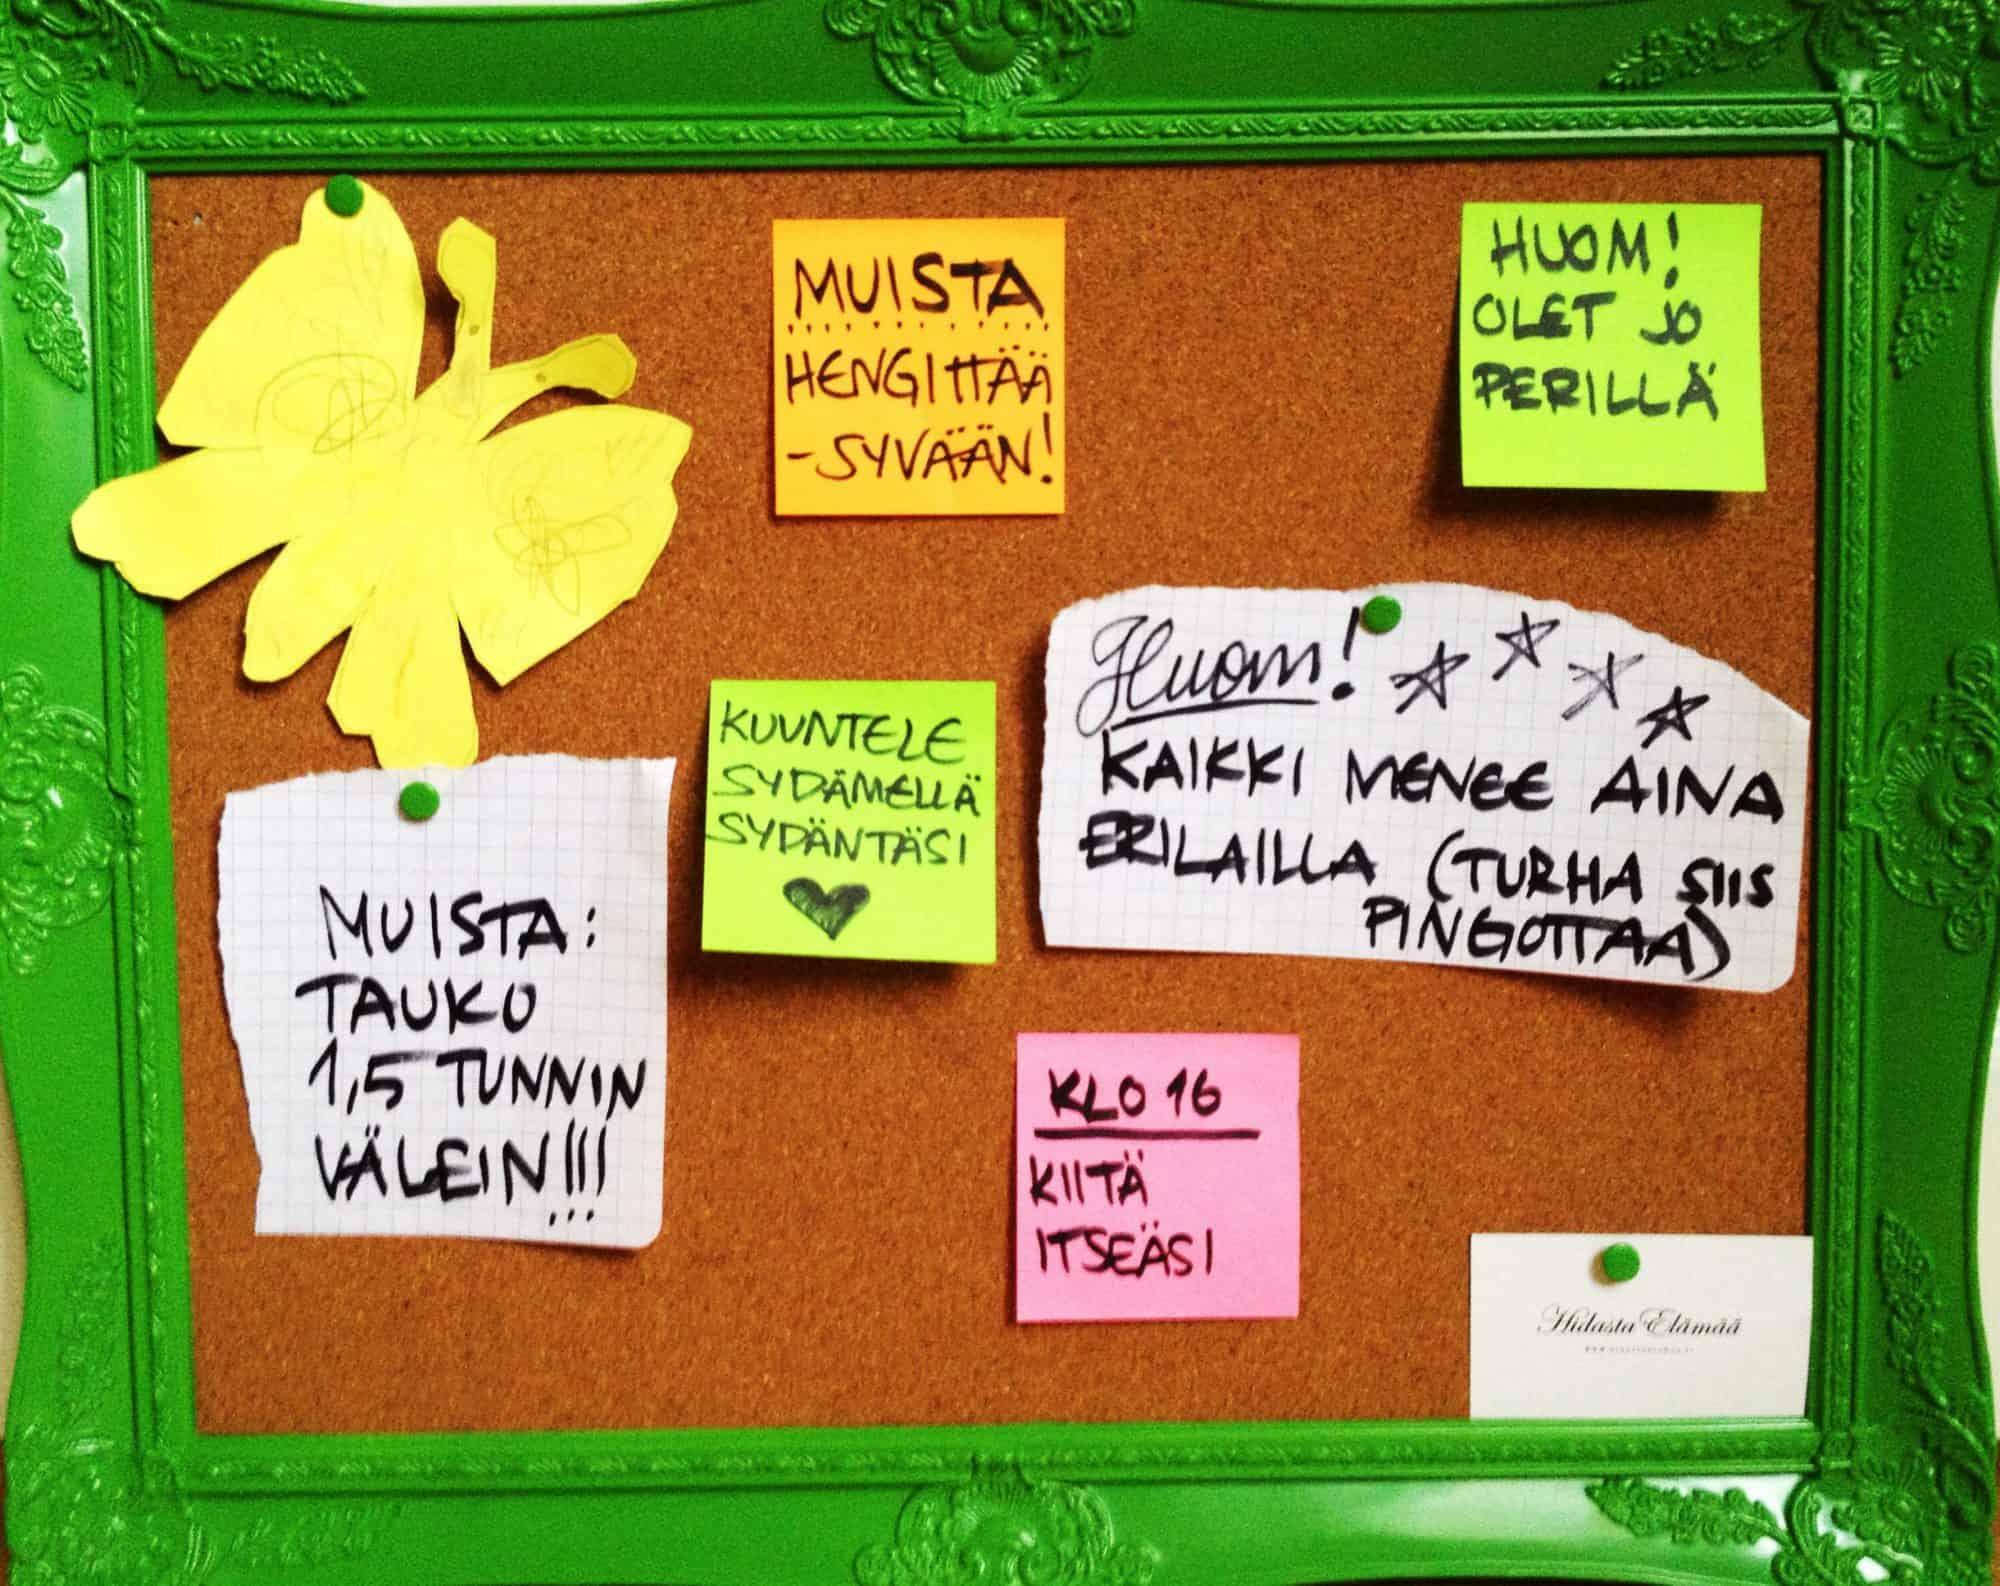 MUISTA
HENGITTÄÄ
-SYVÄÄN!
HUOM!
OLET JO
PERILLÄ
KUUNTELE
SYDÄMELLÄ
SYDÄNTÄSI
Huom!
KAIKKI MENEE AINA
ERILAILLA (TURHA SIIS
PINGOTTAA)
MUISTA:
TAUKO
1,5 TUNNIN
VÄLEIN!!!
KLO 16
KIITÄ
ITSEÄSI
Hidasta Elämää